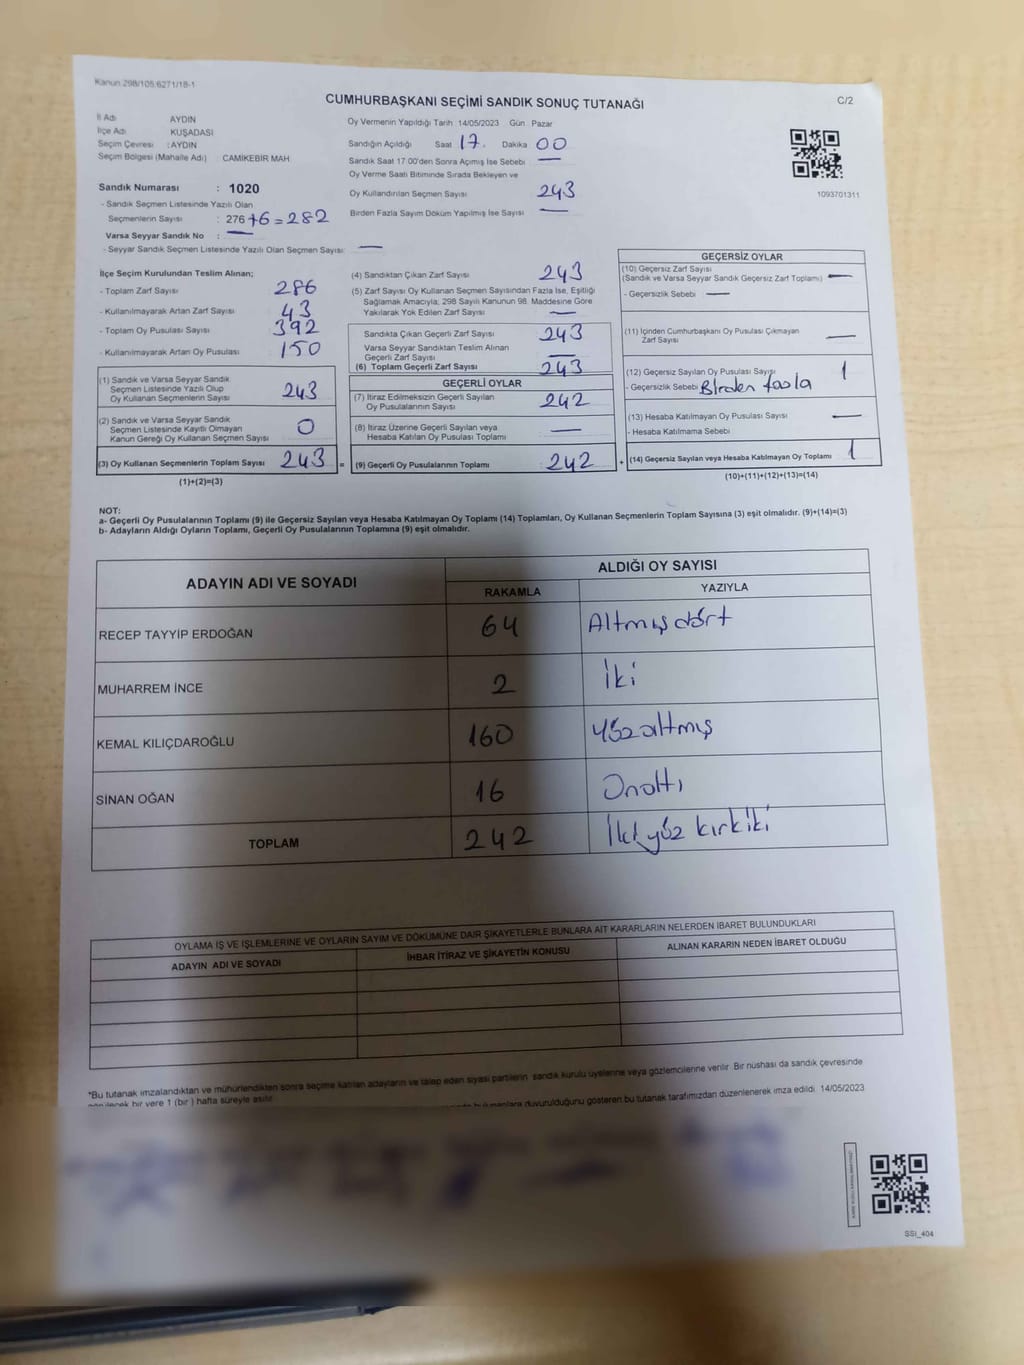 Kanun 298/105 6271/18-1
CUMHURBAŞKANI SEÇİMİ SANDIK SONUÇ TUTANAĞI
C/2
İl Adı AYDIN
İlçe Adı KUŞADASI
Seçim Çevresi : AYDIN
Seçim Bölgesi (Mahalle Adı) : CAMİKEBİR MAH.
Sandık Numarası : 1020
- Sandık Seçmen Listesinde Yazılı Olan
Seçmenlerin Sayısı : 276+6=282
Varsa Seyyar Sandık No : —
- Seyyar Sandık Seçmen Listesinde Yazılı Olan Seçmen Sayısı: —
Oy Vermenin Yapıldığı Tarih 14/05/2023 Gün : Pazar
Sandığın Açıldığı Saat 17. Dakika 00
Sandık Saat 17 00'den Sonra Açımış İse Sebebi —
Oy Verme Saati Bitiminde Sırada Bekleyen ve
Oy Kullandırılan Seçmen Sayısı 243
Birden Fazla Sayım Döküm Yapılmış İse Sayısı —
1093701311
İlçe Seçim Kurulundan Teslim Alınan;
- Toplam Zarf Sayısı 286
- Kullanılmayarak Artan Zarf Sayısı 43
- Toplam Oy Pusulası Sayısı 392
- Kullanılmayarak Artan Oy Pusulası 150
(1) Sandık ve Varsa Seyyar Sandık
Seçmen Listesinde Yazılı Olup
Oy Kullanan Seçmenlerin Sayısı 243
(2) Sandık ve Varsa Seyyar Sandık
Seçmen Listesinde Kayıtlı Olmayan
Kanun Gereği Oy Kullanan Seçmen Sayısı 0
(3) Oy Kullanan Seçmenlerin Toplam Sayısı 243 =
(1)+(2)=(3)
(4) Sandıktan Çıkan Zarf Sayısı 243
(5) Zarf Sayısı Oy Kullanan Seçmen Sayısından Fazla İse, Eşitliği
Sağlamak Amacıyla; 298 Sayılı Kanunun 98. Maddesine Göre
Yakılarak Yok Edilen Zarf Sayısı —
Sandıkta Çıkan Geçerli Zarf Sayısı 243
Varsa Seyyar Sandıktan Teslim Alınan
Geçerli Zarf Sayısı —
(6) Toplam Geçerli Zarf Sayısı 243
GEÇERLİ OYLAR
(7) İtiraz Edilmeksizin Geçerli Sayılan
Oy Pusulalarının Sayısı 242
(8) İtiraz Üzerine Geçerli Sayılan veya
Hesaba Katılan Oy Pusulası Toplamı —
(9) Geçerli Oy Pusulalarının Toplamı 242 +
GEÇERSİZ OYLAR
(10) Geçersiz Zarf Sayısı
(Sandık ve Varsa Seyyar Sandık Geçersiz Zarf Toplamı) —
- Geçersizlik Sebebi —
(11) İçinden Cumhurbaşkanı Oy Pusulası Çıkmayan
Zarf Sayısı —
(12) Geçersiz Sayılan Oy Pusulası Sayısı 1
- Geçersizlik Sebebi Birden fazla
(13) Hesaba Katılmayan Oy Pusulası Sayısı —
- Hesaba Katılmama Sebebi
(14) Geçersiz Sayılan veya Hesaba Katılmayan Oy Toplamı 1
(10)+(11)+(12)+(13)=(14)
NOT:
a- Geçerli Oy Pusulalarının Toplamı (9) ile Geçersiz Sayılan veya Hesaba Katılmayan Oy Toplamı (14) Toplamları, Oy Kullanan Seçmenlerin Toplam Sayısına (3) eşit olmalıdır. (9)+(14)=(3)
b- Adayların Aldığı Oyların Toplamı, Geçerli Oy Pusulalarının Toplamına (9) eşit olmalıdır.
ADAYIN ADI VE SOYADI ALDIĞI OY SAYISI
RAKAMLA YAZIYLA
RECEP TAYYİP ERDOĞAN 64 Altmış dört
MUHARREM İNCE 2 İki
KEMAL KILIÇDAROĞLU 160 Yüz altmış
SİNAN OĞAN 16 Onaltı
TOPLAM 242 İki yüz kırkiki
OYLAMA İŞ VE İŞLEMLERİNE VE OYLARIN SAYIM VE DÖKÜMÜNE DAİR ŞİKAYETLERLE BUNLARA AİT KARARLARIN NELERDEN İBARET BULUNDUKLARI
ADAYIN ADI VE SOYADI İHBAR İTİRAZ VE ŞİKAYETİN KONUSU ALINAN KARARIN NEDEN İBARET OLDUĞU
*Bu tutanak imzalandıktan ve mühürlendikten sonra seçime katılan adayların ve talep eden siyasi partilerin sandık kurulu üyelerine veya gözlemcilerine verilir. Bir nüshası da sandık çevresinde
bir yere 1 (bir ) hafta süreyle asılır. duyurulduğunu gösteren bu tutanak tarafımızdan düzenlenerek imza edildi. 14/05/2023
SSI_404